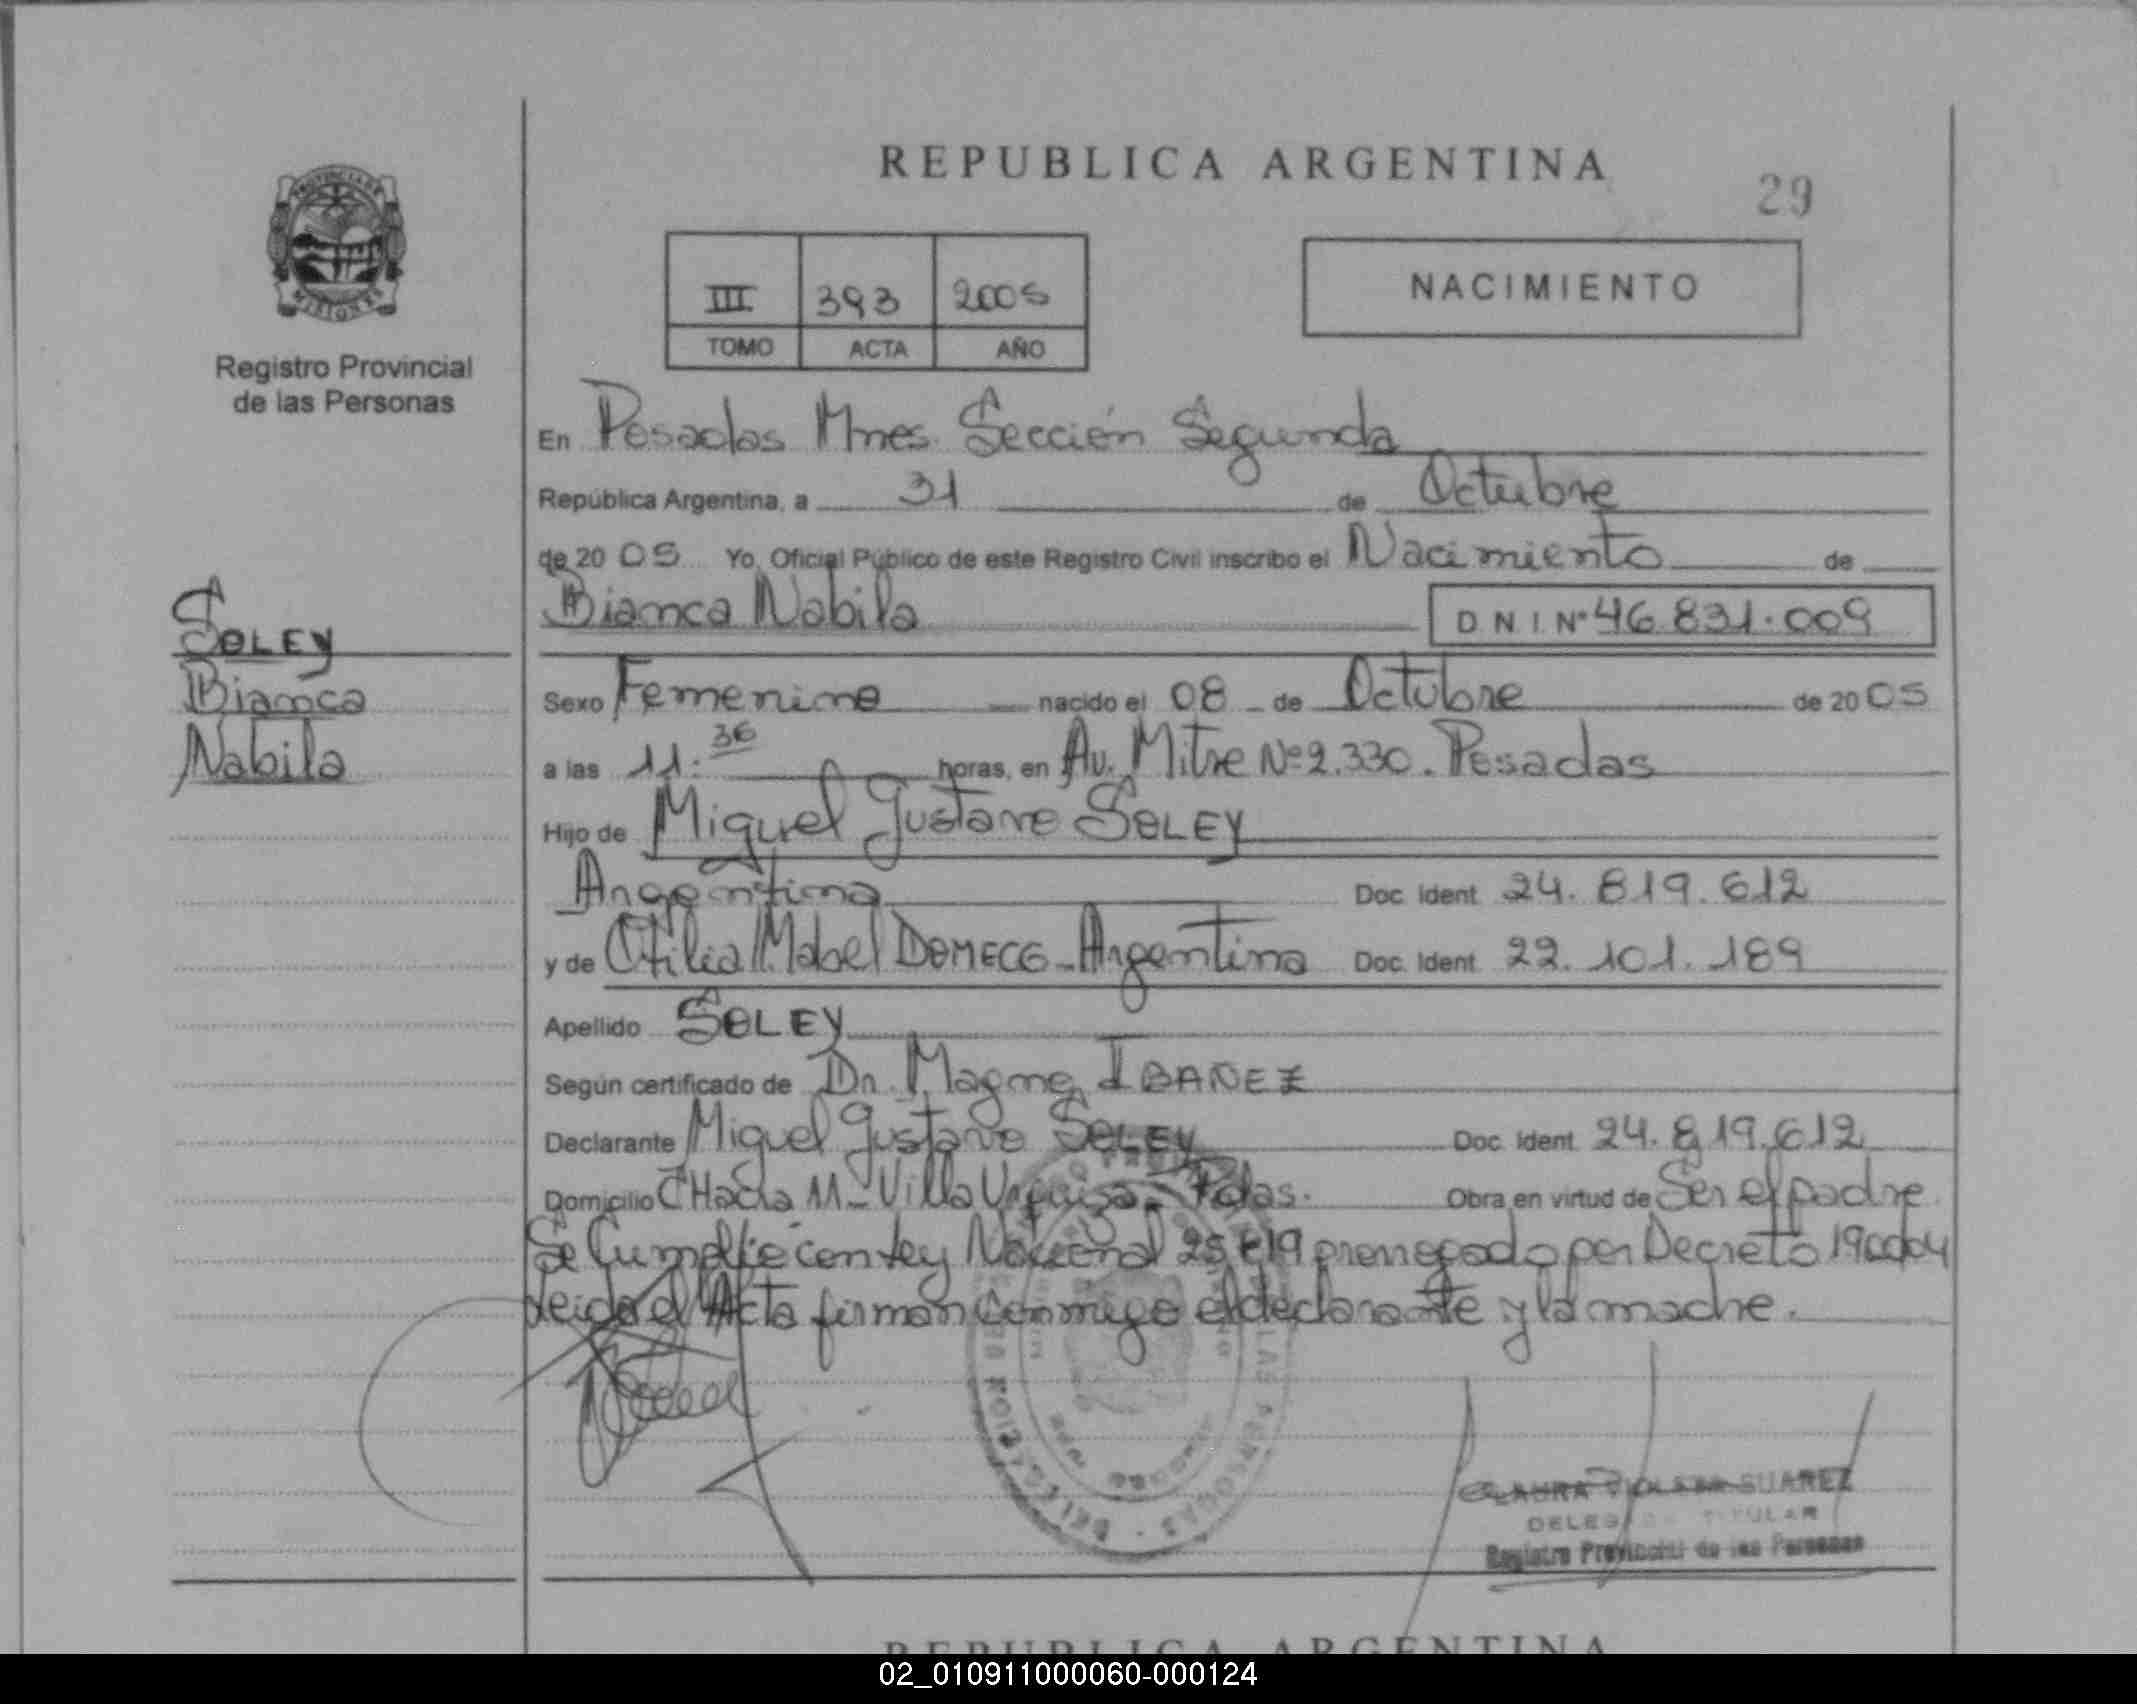 REPUBLICA ARGENTINA
29
PROVINCIA DE
MISIONES
Registro Provincial
de las Personas
III 393 2005
TOMO ACTA AÑO
NACIMIENTO
En Posadas Mnes. Sección Segunda
República Argentina, a 31 de Octubre
de 20 05 Yo, Oficial Público de este Registro Civil inscribo el Nacimiento de
Bianca Nabila D N I Nº 46.831.009
SOLEY
Bianca
Nabila
Sexo Femenino nacido el 08 de Octubre de 20 05
a las 11:36 horas, en Av. Mitre Nº 2.330. Posadas
Hijo de Miguel Gustavo SOLEY
Argentina Doc. Ident. 24.819.612
y de Otilia Mabel DOMECG - Argentina Doc. Ident. 22.101.189
Apellido SOLEY
Según certificado de Dr. Magno IBAÑEZ
Declarante Miguel Gustavo SOLEY Doc. Ident. 24.819.612
Domicilio CHacra 11 - Villa Urquiza - Pdas. Obra en virtud de Ser el padre
Se Cumplió con Ley Nacional 25819 por Decreto
Leida el Acta firman conmigo el declarante y la madre.
SUAREZ
TITULAR
Registro Provincial de las Personas
REPUBLICA ARGENTINA
02_010911000060-000124